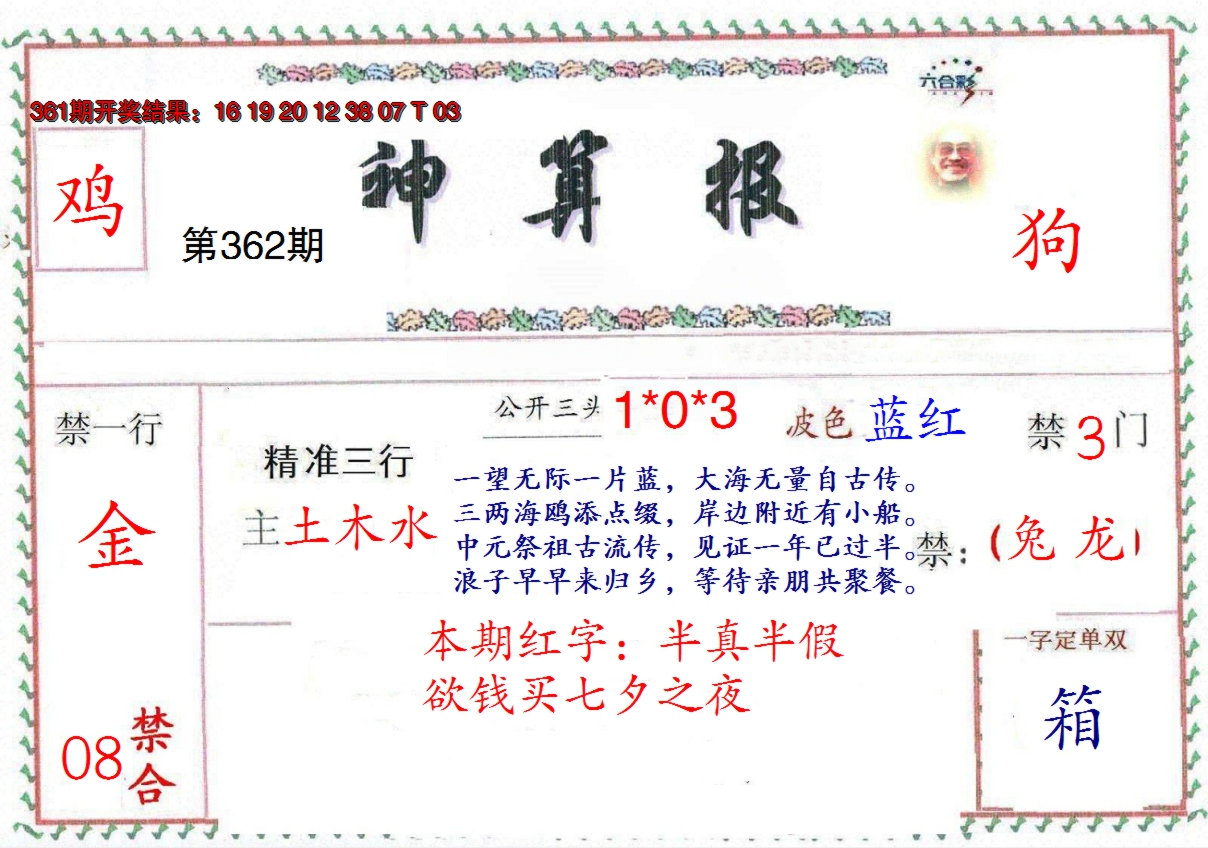 六合彩
361期开奖结果：16 19 20 12 38 07 T 03
鸡
神算报
第362期
狗
禁一行
金
08
禁合
精准三行
主土木水
公开三头 1*0*3
波色 蓝红
禁3门
一望无际一片蓝，大海无量自古传。
三两海鸥添点缀，岸边附近有小船。
中元祭祖古流传，见证一年已过半。
浪子早早来归乡，等待亲朋共聚餐。
禁：（兔 龙）
本期红字：半真半假
欲钱买七夕之夜
一字定单双
箱